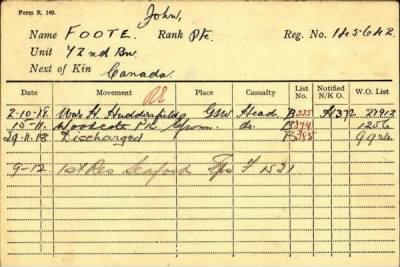 Form R. 149.
John,
Name FOOTE. Rank Pte. Reg. No. 145642.
Unit 72nd Bn.
Next of Kin Canada.
Date Movement Place Casualty List No. Notified N/K O. W.O. List
2-10-18 War H. Huddersfield GSW Head B335 H372 27913
15-11- Woodcote Pk Epsom. do. B344 1256
29-11-18 Discharged B365
9-12 1st Res Seaford